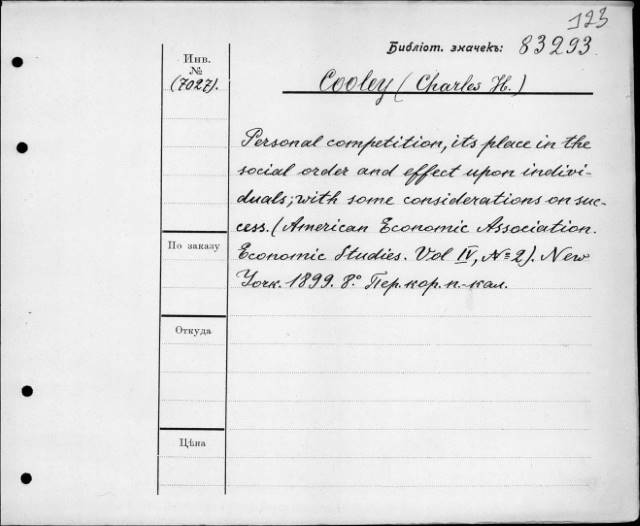 123
Библіот. значекъ: 83293
Инв.
№
(7027).
Cooley (Charles H.)
Personal competition, its place in the
social order and effect upon indivi-
duals; with some considerations on suc-
cess. (American Economic Association.
Economic Studies. Vol IV, № 2). New
York. 1899. 8.° Пер. кор. п.-кал.
По заказу
Откуда
Цѣна